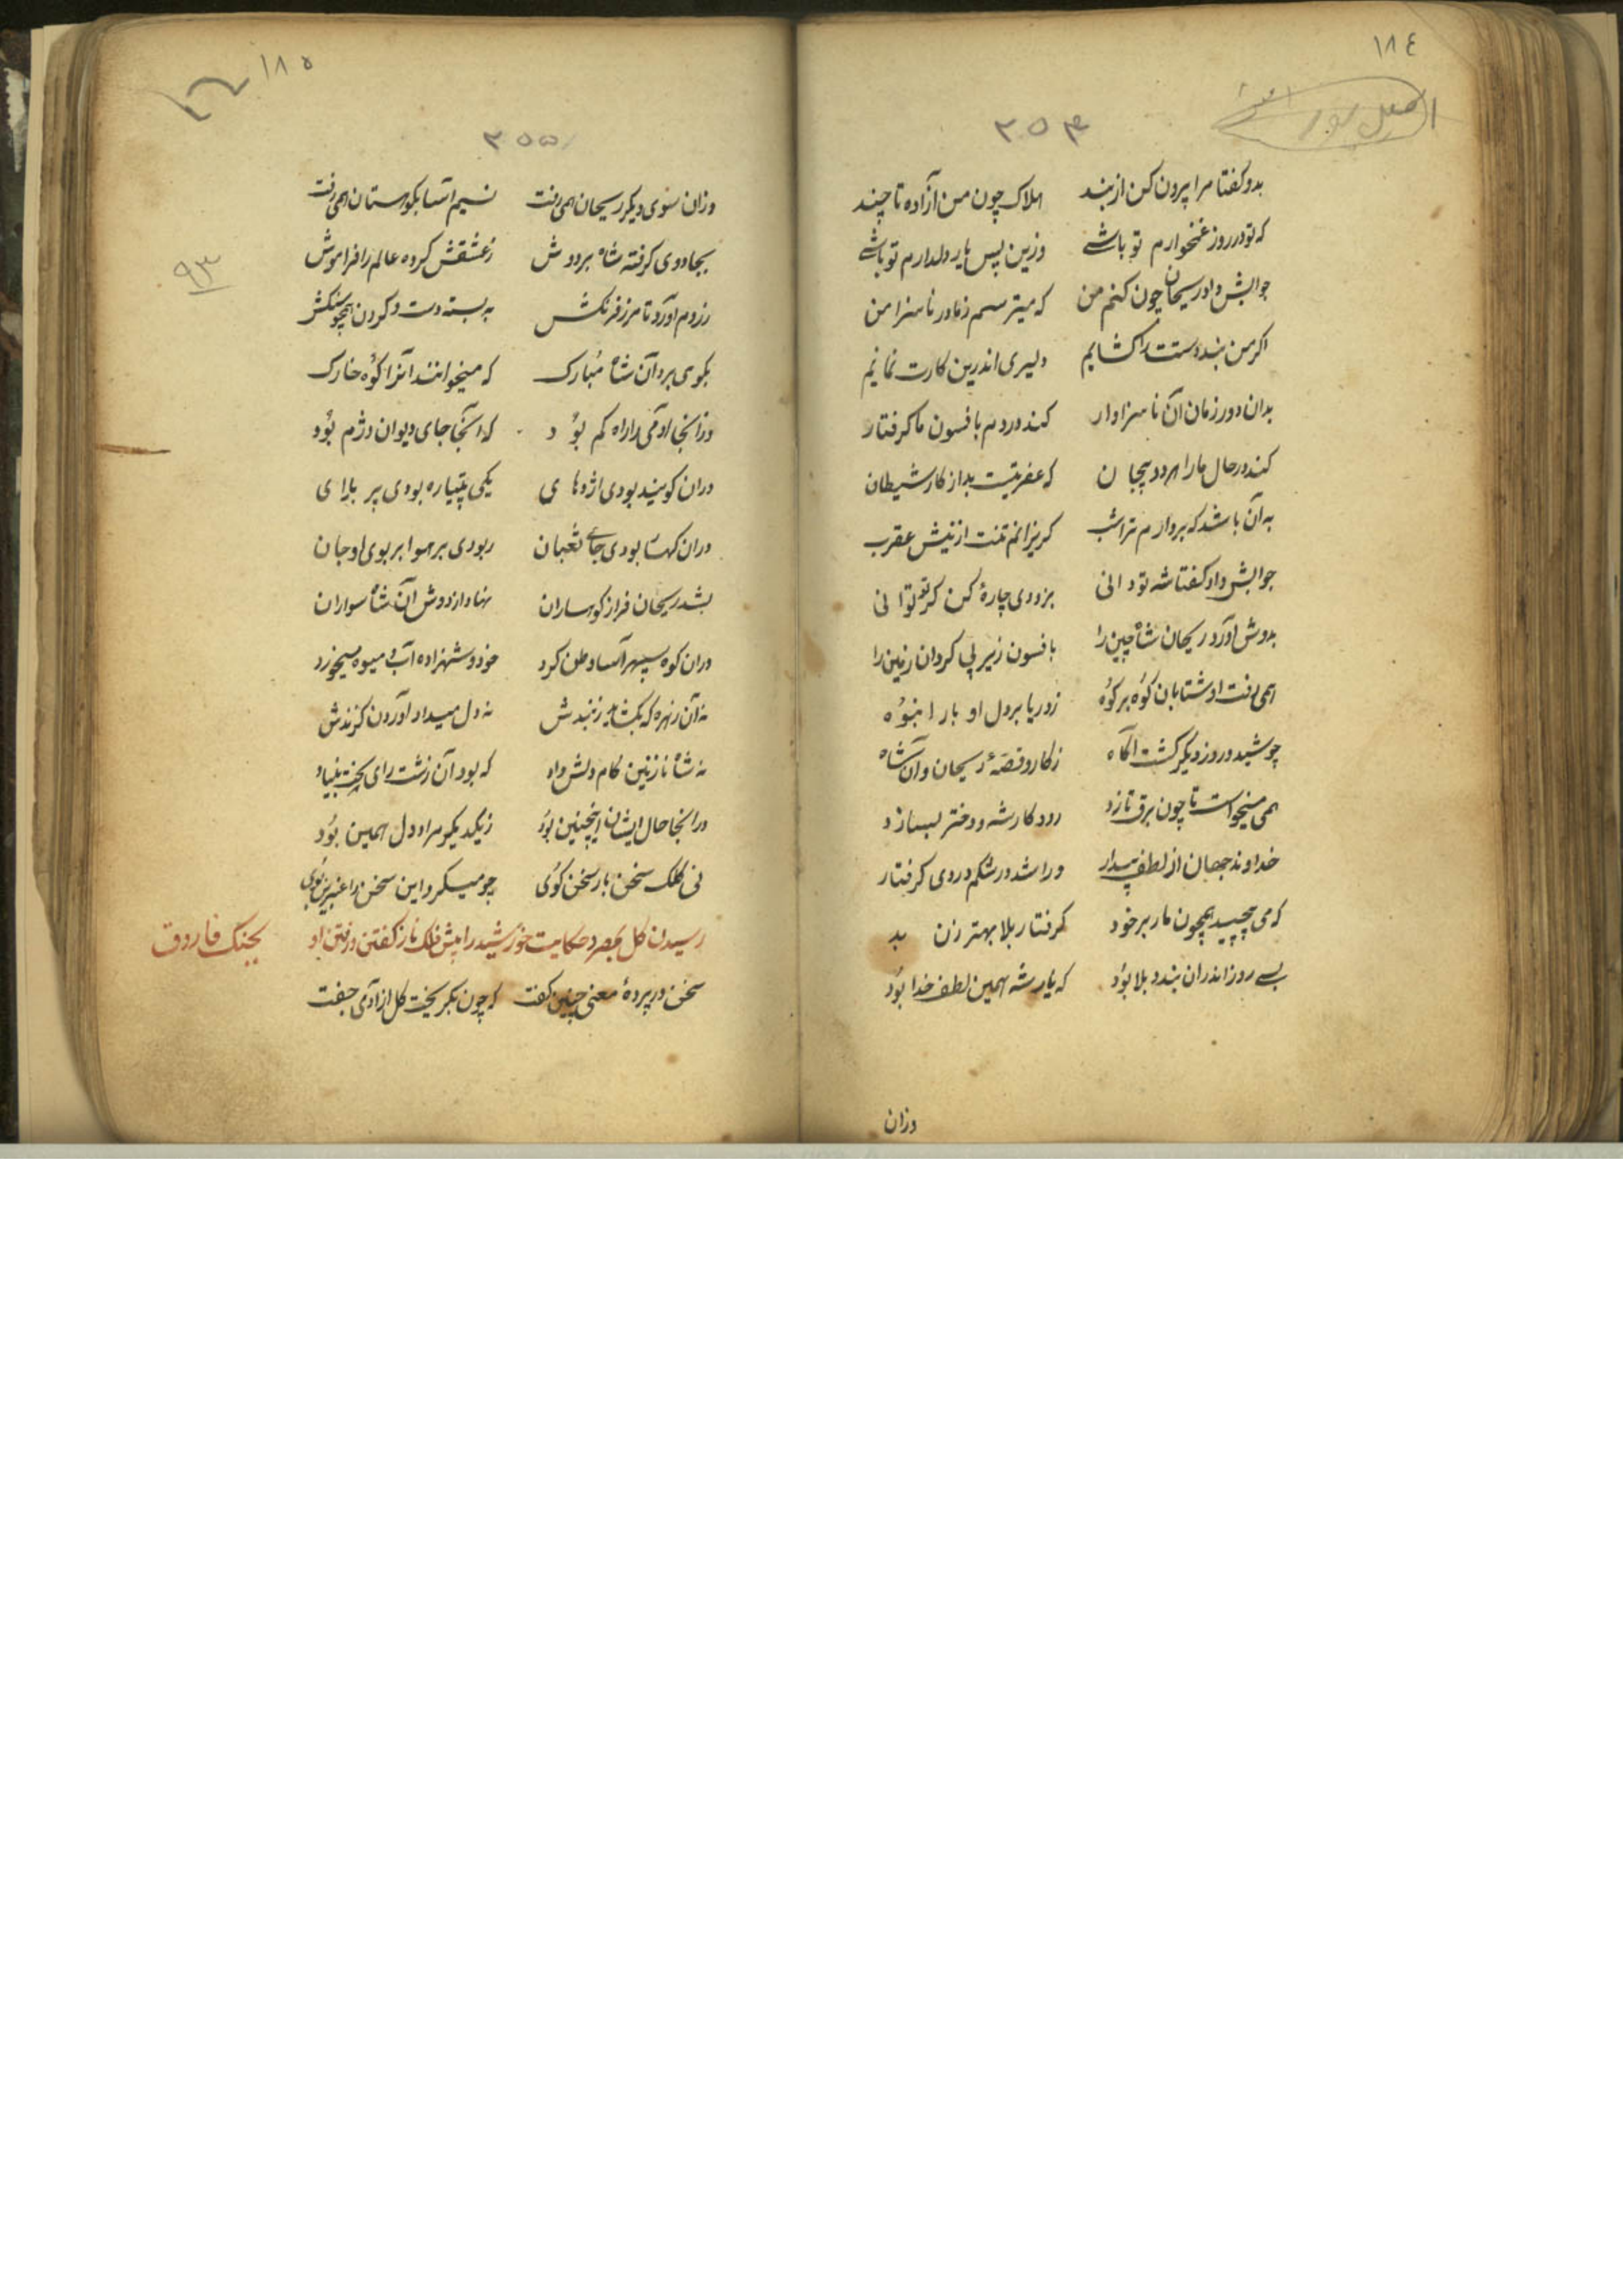 ١٨٤
٢٥٤
بدو کفتا مرا بیرون کن از بند هلاک چون من آزاده تا چند
که تو در روز غمخوارم تو باشے وزین پس یار دلدارم تو باشے
جوابش داد ریحان چون کنم من که میترسم ز مادر ناسزا من
اکر من بند دستت را کشایم دلیری اندرین کارت نمایم
بدان دور زمان آن ناسزاوار کند در دم بافسون ما کرفتار
کند در حال ما را هر دو بیجان که عفریتیت بد از کار شیطان
به آن باشد که بردارم تراشب کریزانم تنت از نیش عقرب
جوابش داد کفتا شه تو دانی بزودی چارهٔ کن کر توانی
بدوش آورد ریحان شاه چین را بافسون زیر پی کردان زمین را
همی رفت او شتابان کوه بر کوه ز دریا بر دل او بار انبوه
چو شید و روز دیکر کشت آکاه ز کار و قصهٔ ریحان و آن شاه
همی میخواست تا چون برق تازد رود کار شه و دختر بسازد
خداوند جهان از لطف بیدار ورا شد در شکم دردی کرفتار
که می پیچید همچون مار بر خود کرفتار بلا بهتر زن بد
بسے روز اندران بند و بلا بود که یار شه همین لطف خدا بود
وزان
١٨٥
٢٥٥
٩٣
وزان سوی دیکر ریحان همی رفت نسیم آسا بکوهستان همی رفت
بجادوی کرفته شاه بر دوش ز عشقش کرده عالم را فراموش
ز روم آورد تا مرز فرنکش به بسته دست و کردن همچو سنکش
بکوی برد آن شاه مبارک که میخوانند آنرا کوه خارک
وزانجا آدمی را راه کم بود که آنجا جای دیوان دژم بود
دران کویند بودی اژدهای یکی پتیاره بودی پر بلای
دران کهسا بودی جای ثعبان ربودی بر هوا بر بوی او جان
بشد ریحان فراز کوهساران نهاد از دوش آن شاه سواران
دران کوه سپهر آسا وطن کرد خود و شهزاده آب و میوه میخورد
نه آن زهره که بکشاید ز بندش نه دل میداد آوردن کزندش
نه شاه نازنین کام دلش داد که بود آن زشت رای
درانجا حال ایشان اینچنین بود ز یکدیکر مراد دل همین بود
نی کلک سخن بار سخن کوی چو میکرد این سخن را عنبرین بوی
رسیدن کل بمصر و حکایت خورشید را پیش ناز کفتن و رفتن او بجنک فاروق
سخن در پردهٔ معنی چنین کفت که چون بکریخت کل از آدمی جفت